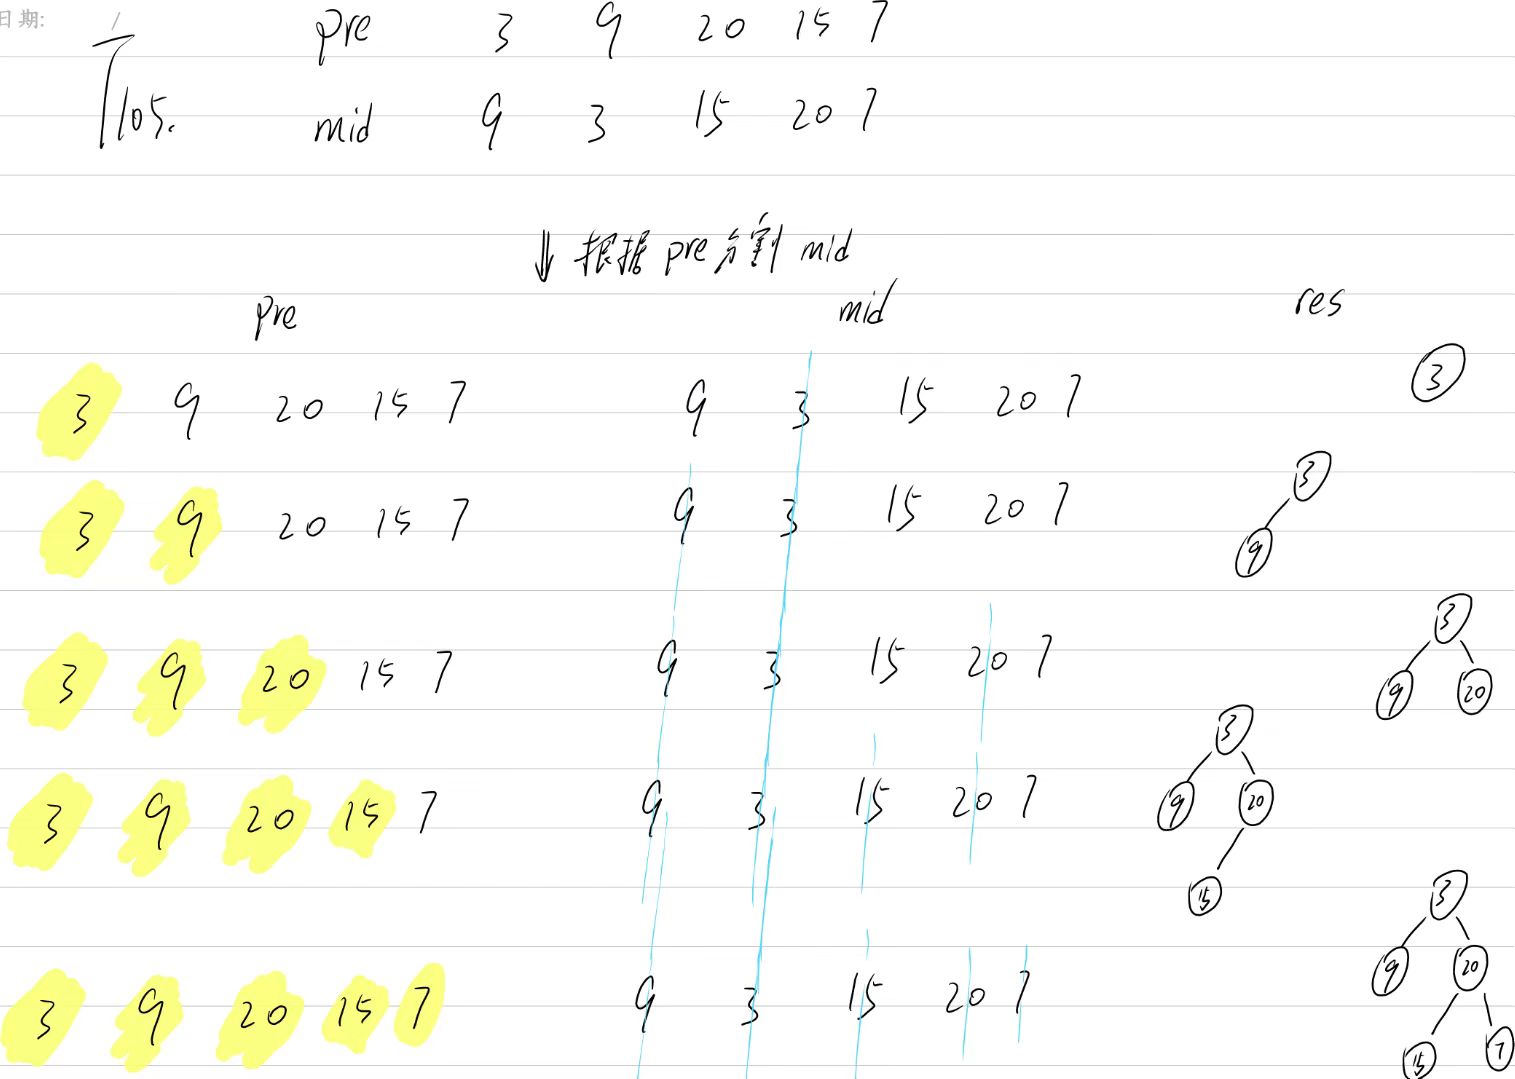 日期: /
pre 3 9 20 15 7
T105. mid 9 3 15 20 7
↓ 根据 pre 分割 mid
pre mid res
3 9 20 15 7 9 3 15 20 7 3
3 9 20 15 7 9 3 15 20 7 3 9
3 9 20 15 7 9 3 15 20 7 3 9 20
3 9 20 15 7 9 3 15 20 7 3 9 20 15
3 9 20 15 7 9 3 15 20 7 3 9 20 15 7